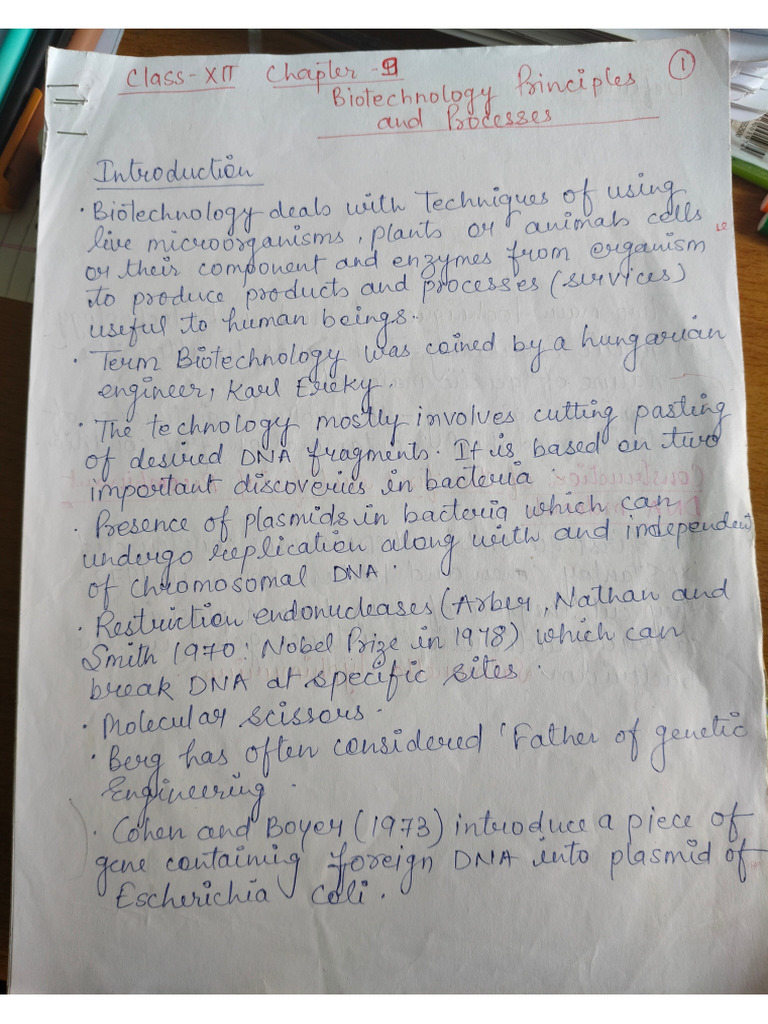 Class-XII Chapter-9
①
Biotechnology Principles
and Processes
Introduction
• Biotechnology deals with techniques of using
live microorganisms, plants or animals cells
or their component and enzymes from organism
to produce products and processes (services)
useful to human beings.
• Term Biotechnology was coined by a hungarian
engineer, Karl Ereky.
• The technology mostly involves cutting pasting
of desired DNA fragments. It is based on two
important discoveries in bacteria.
• Presence of plasmids in bacteria which can
undergo replication along with and independent
of chromosomal DNA.
• Restriction endonucleases (Arber, Nathan and
Smith 1970: Nobel Prize in 1978) which can
break DNA at specific sites.
• Molecular scissors.
• Berg has often considered 'Father of genetic
Engineering.
• Cohen and Boyer (1973) introduce a piece of
gene containing foreign DNA into plasmid of
Escherichia coli.